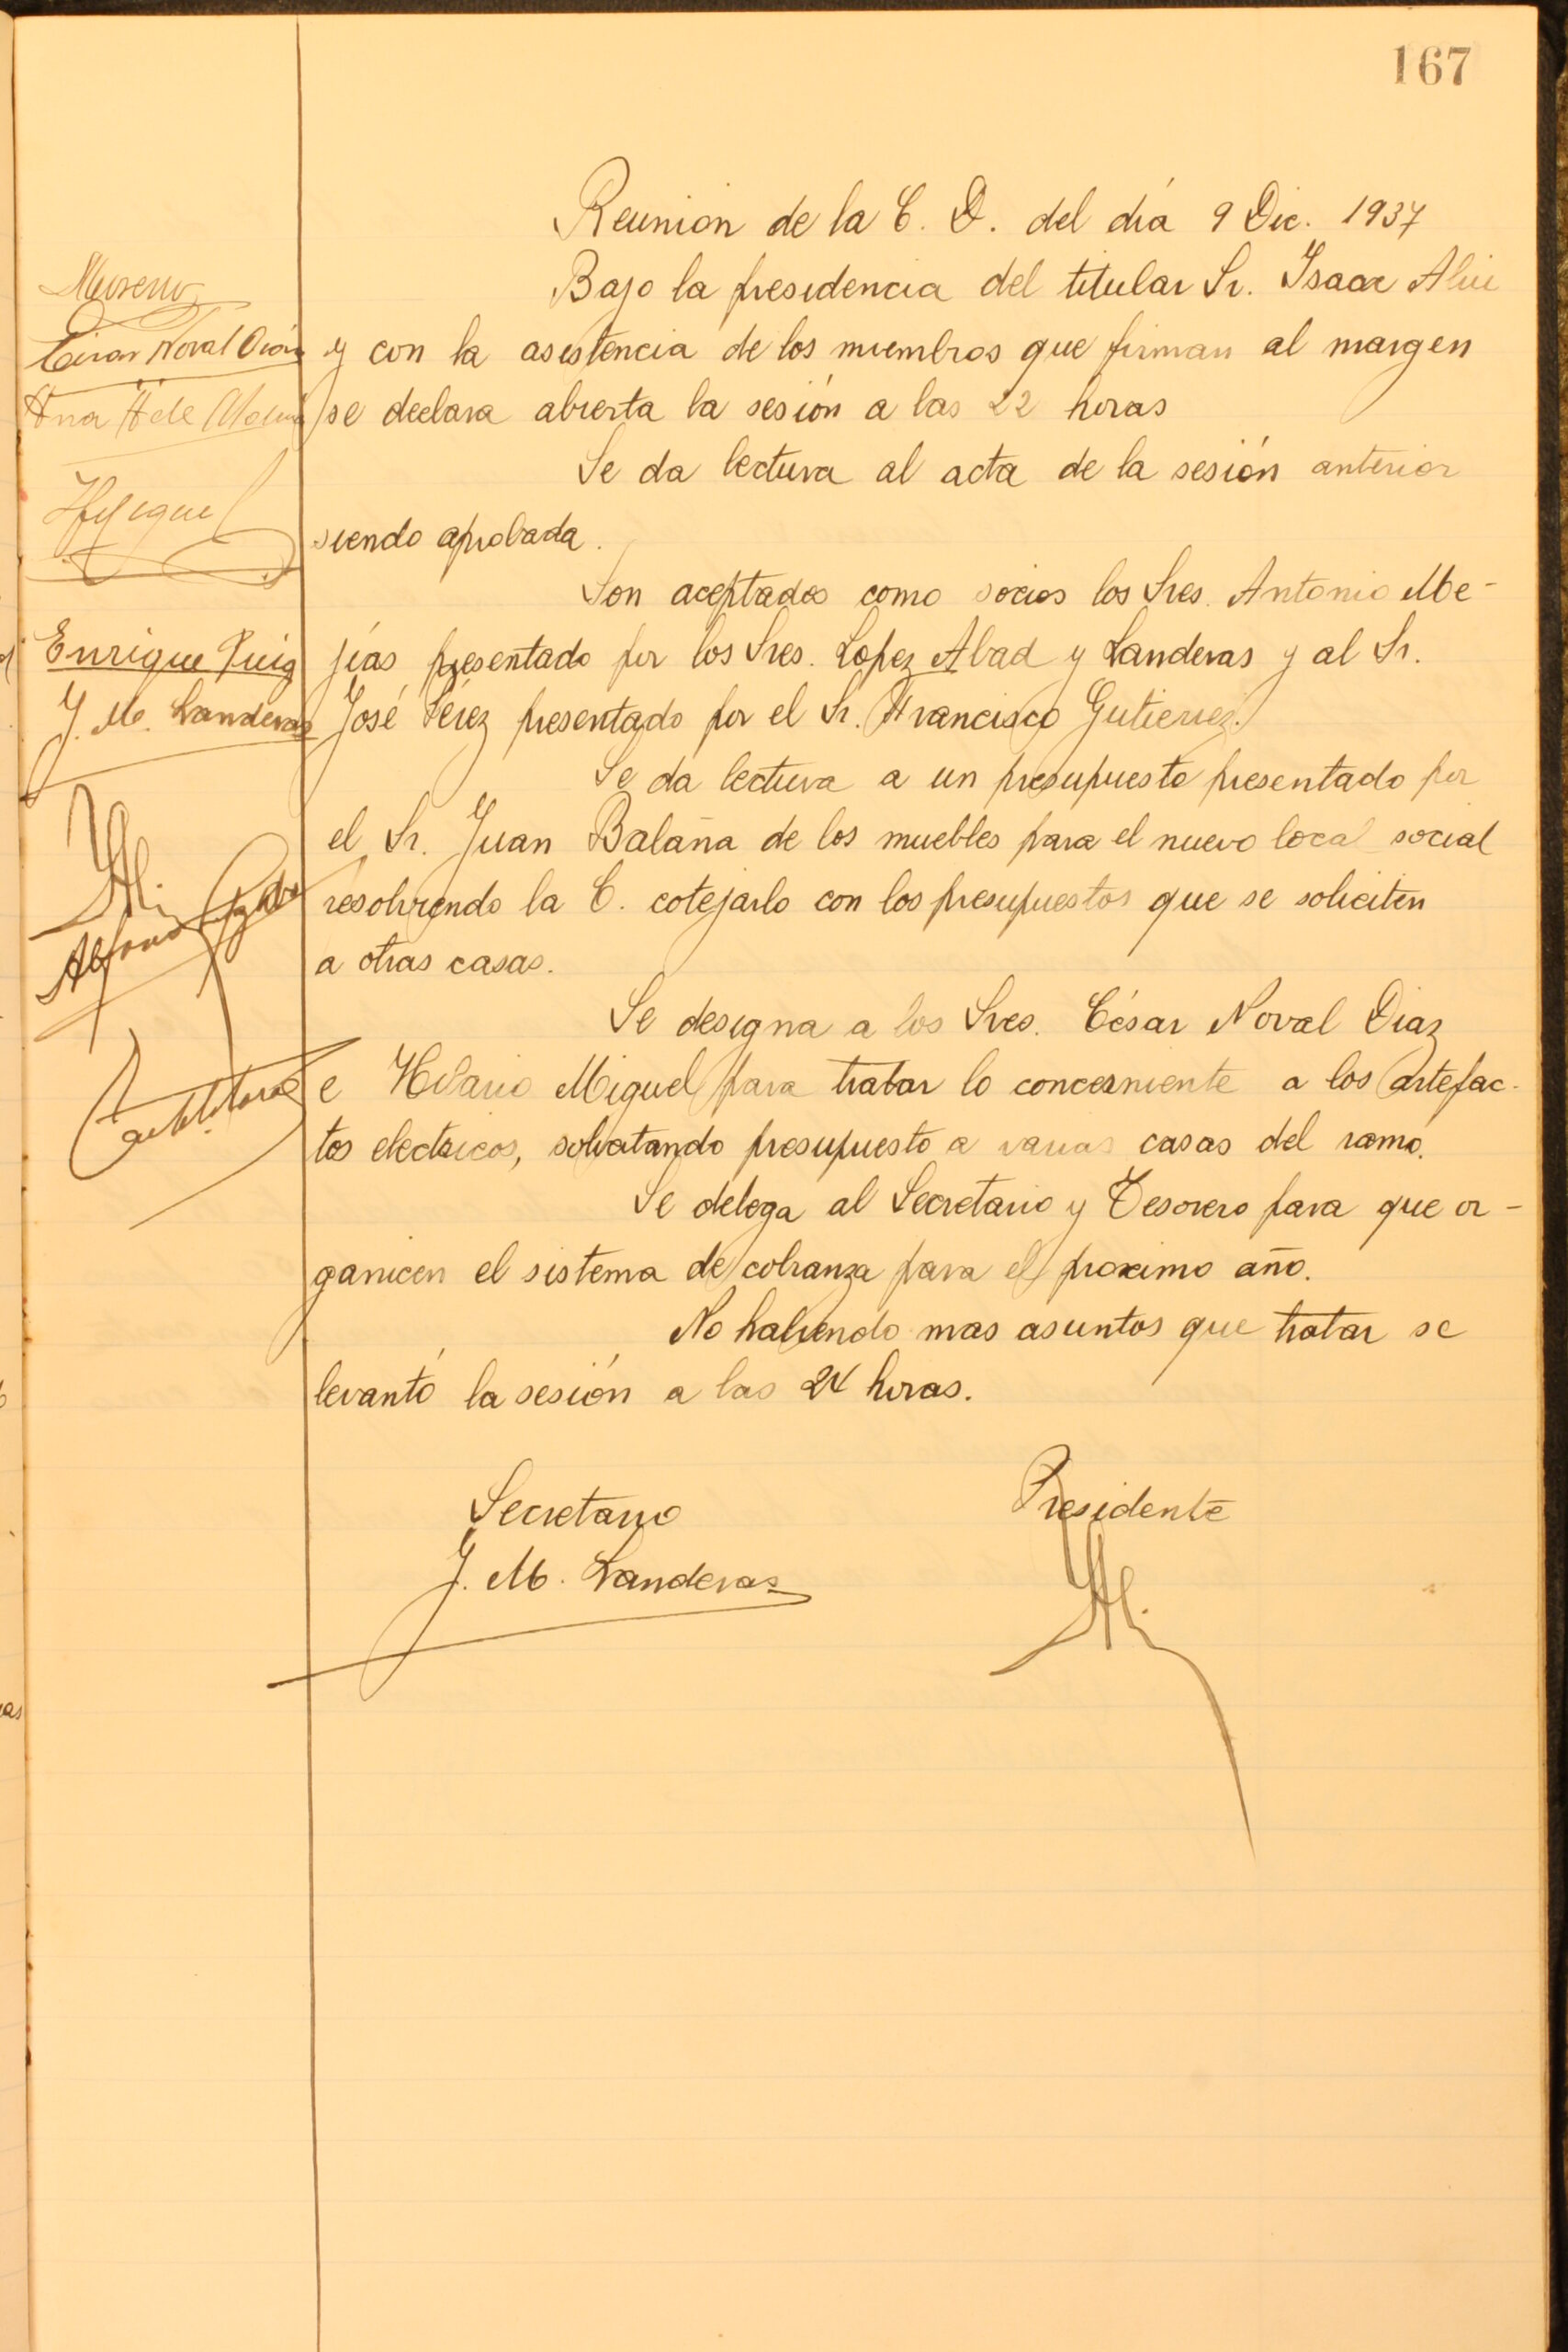 167
Reunion de la C. D. del día 9 Dic. 1937
Bajo la presidencia del titular Sr. Isaac
y con la asistencia de los miembros que firman al margen
se declara abierta la sesión a las 22 horas
Se da lectura al acta de la sesión anterior
siendo aprobada.
Son aceptados como socios los Sres. Antonio Me-
jías presentado por los Sres. Lopez Abad y Landeras y al Sr.
José Pérez presentado por el Sr. Francisco Gutierrez.
Se da lectura a un presupuesto presentado por
el Sr. Juan Balaña de los muebles para el nuevo local social
resolviendo la C. cotejarlo con los presupuestos que se soliciten
a otras casas.
Se designa a los Sres. César Noval Diaz
e Hilario Miguel para tratar lo concerniente a los artefac-
tos electricos, solicitando presupuesto a varias casas del ramo.
Se delega al Secretario y Tesorero para que or-
ganicen el sistema de cobranza para el proximo año.
No habiendo mas asuntos que tratar se
levantó la sesión a las 24 horas.
Secretario
Presidente
J. M. Landeras
Moreno
Noval
Ana
Enrique Puig
J. M. Landeras
Alfonso